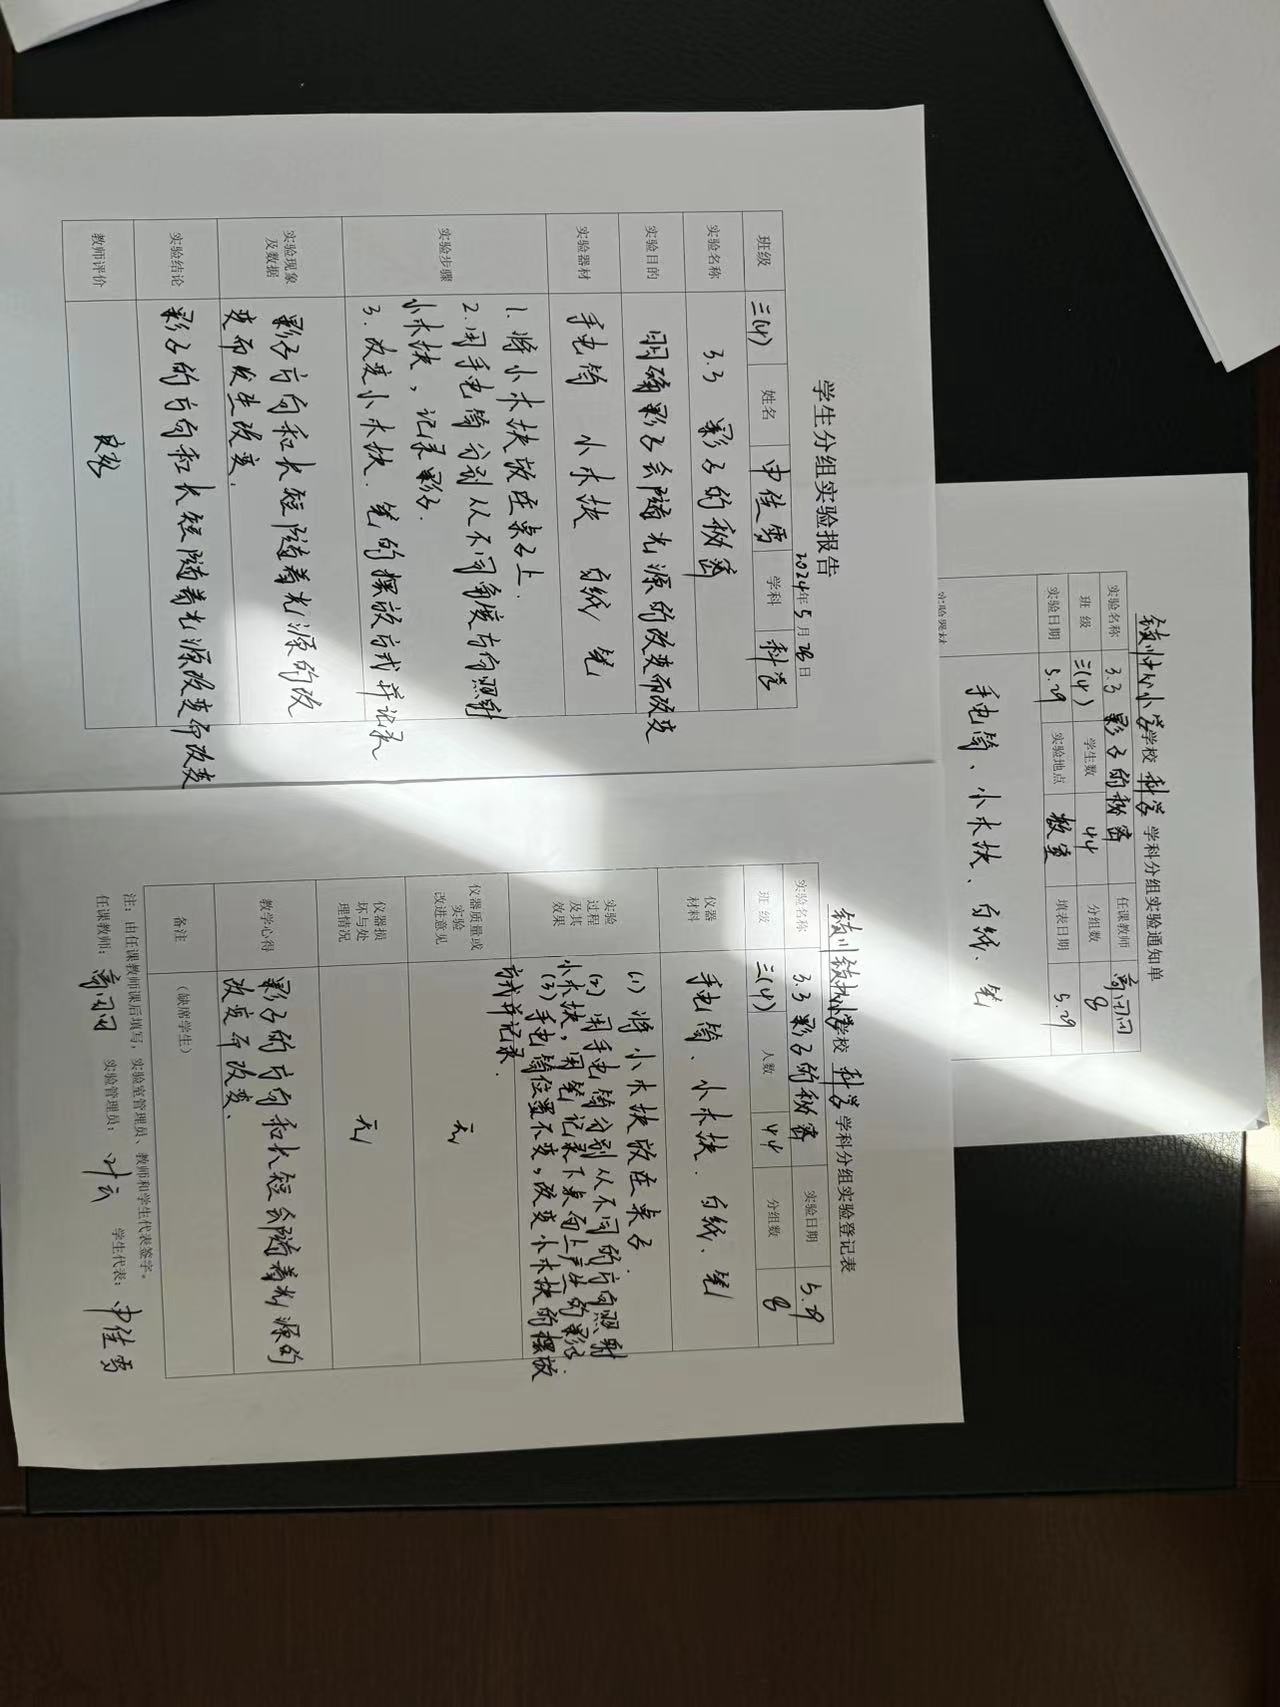 学生分组实验报告
2024年5月28日
班级 三(4) 姓名 申佳雪 学科 科学
实验名称 3.3 影子的秘密
实验目的 明确影子会随光源的改变而改变
实验器材 手电筒 小木块 白纸 笔
实验步骤
1. 将小木块放在桌子上.
2. 用手电筒分别从不同角度方向照射
小木块，记录影子.
3. 改变小木块. 笔的摆放方式并记录
实验现象
及数据
影子方向和长短随着光源的改
变而发生改变.
实验结论 影子的方向和长短随着光源改变而改变
教师评价
中心小学学校 科学 学科分组实验通知单
实验名称 3.3 影子的秘密 任课教师
班 级 三(4) 学生数 44 分组数 8
实验日期 5.29 实验地点 教室 填表日期 5.29
实验器材
手电筒、小木块、白纸、笔
学校 科学 学科分组实验登记表
实验名称 3.3 影子的秘密 实验日期 5.29
班 级 三(4) 人数 44 分组数 8
仪器
材料
手电筒、小木块、白纸、笔
实验
过程
及其
效果
(1) 将小木块放在桌子.
(2) 用手电筒分别从不同的方向照射
小木块，用笔记录下桌面上产生的影子.
(3) 手电筒位置不变，改变小木块的摆放
方式并记录.
仪器质量或
实验
改进意见
无
仪器损
坏与处
理情况
无
教学心得
影子的方向和长短会随着光源的
改变而改变.
备注 （缺席学生）
注：由任课教师课后填写，实验室管理员、教师和学生代表签字。
任课教师： 实验管理员： 叶云 学生代表： 申佳雪